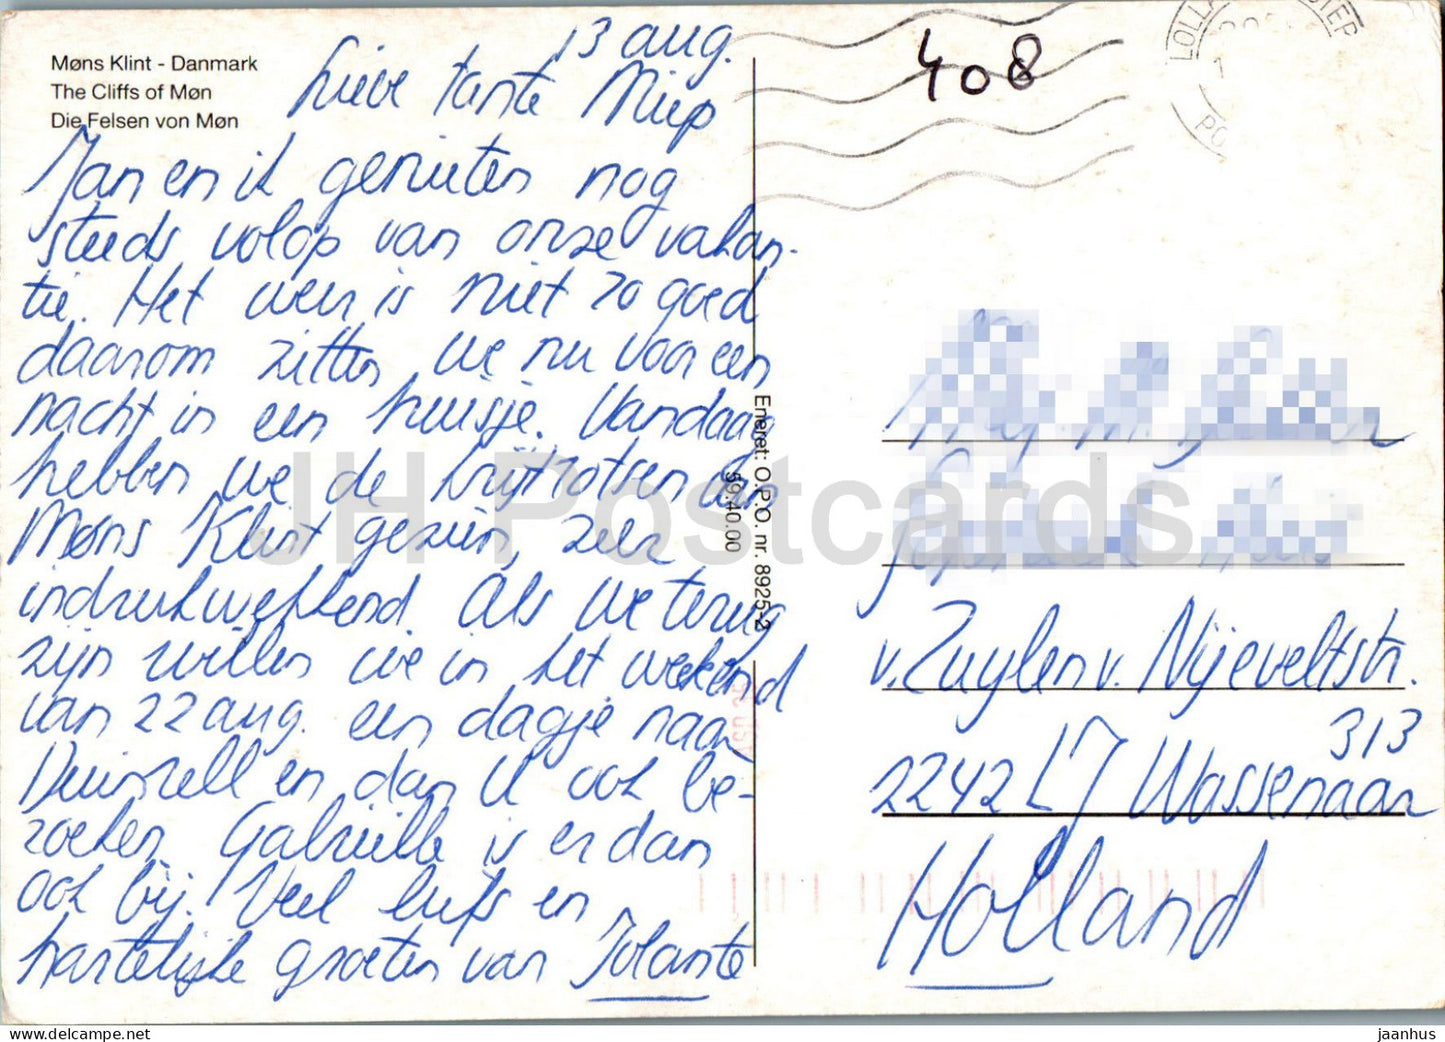 Møns Klint - Danmark
The Cliffs of Møn
Die Felsen von Møn
13 aug.
Lieve tante Miep
Jan en ik genieten nog
steeds volop van onze vakan-
tie. Het weer is niet zo goed
daarom zitten we nu voor een
nacht in een huisje. Vandaag
hebben we de krijtrotsen van
Møns Klint gezien, zeer
indrukwekkend. Als we terug
zijn willen we in het weekend
van 22 aug. een dagje naar
Duinrell en dan U ook be-
zoeken. Gabriëlle is er dan
ook bij. Veel liefs en
hartelijke groeten van Jolante
Eneret: O.P.O. nr. 8925-2
59.40.00
408
v. Zuylen v. Nijeveltstr.
313
2242 LJ Wassenaar
Holland
JH Postcards
jaanhus